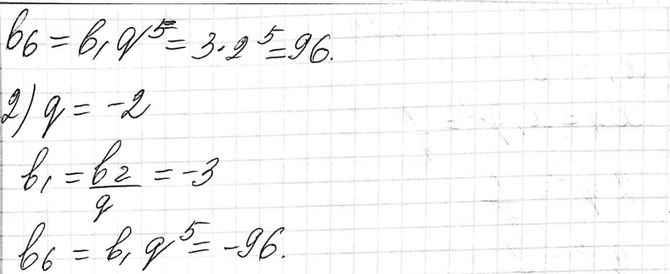 b₆ = b₁q⁵ = 3·2⁵ = 96.
2) q = -2
b₁ = b₂/q = -3
b₆ = b₁q⁵ = -96.